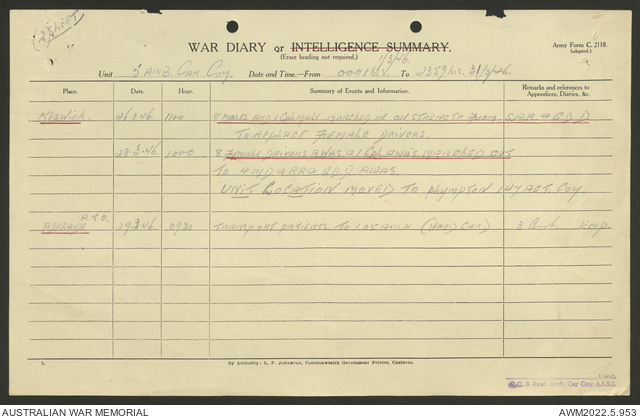 (2 SHEET)
WAR DIARY or INTELLIGENCE SUMMARY.
(Erase heading not required.)
Army Form C. 2118.
(adapted.)
Unit 5 AMB. CAR. Coy. Date and Time.—From 0001 hrs. 1/3/46. To 2359 hrs. 31/3/46.
Place. Date. Hour. Summary of Events and Information. Remarks and references to Appendices, Diaries, &c.
Keswick. 26.3.46. 1100 8 MALES AND 1 CPL MALE MARCHED IN ON STRENGTH FROM S.A.R. & G.D.D
TO REPLACE FEMALE DRIVERS.
28.3.46. 1000 8 FEMALE DRIVERS AWAS & 1 CPL AWAS MARCHED OUT
TO 4 MD AWAS.
UNIT LOCATION MOVED TO Plympton 147 Coy.
ADELAIDE R.T.O. 29.3.46 0930 TRANSPORT PATIENTS TO (WARD CAR) 3 EMP.
1. By Authority: L. F. Johnston, Commonwealth Government Printer, Canberra.
Lieut.
O.C. 5 Aust. Amb. Car Coy. A.A.S.C.
AUSTRALIAN WAR MEMORIAL
AWM2022.5.953